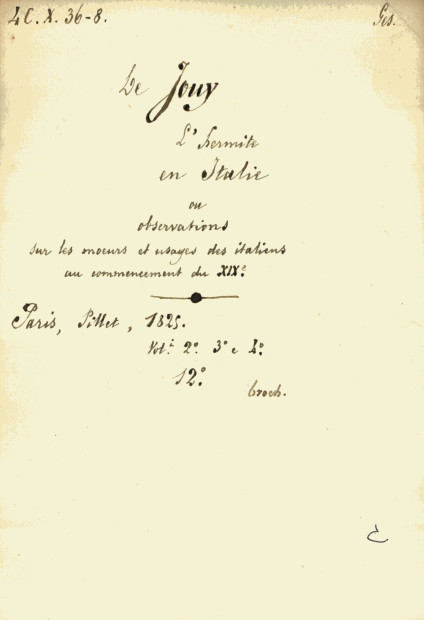 4 C. X. 36-8. Ges.
De Jouy
L'hermite
en Italie
ou
observations
sur les moeurs et usages des italiens
au commencement du XIXe
Paris, Pillet, 1825.
Vol.i 2.o 3.o e 4.o
12.o
broch.